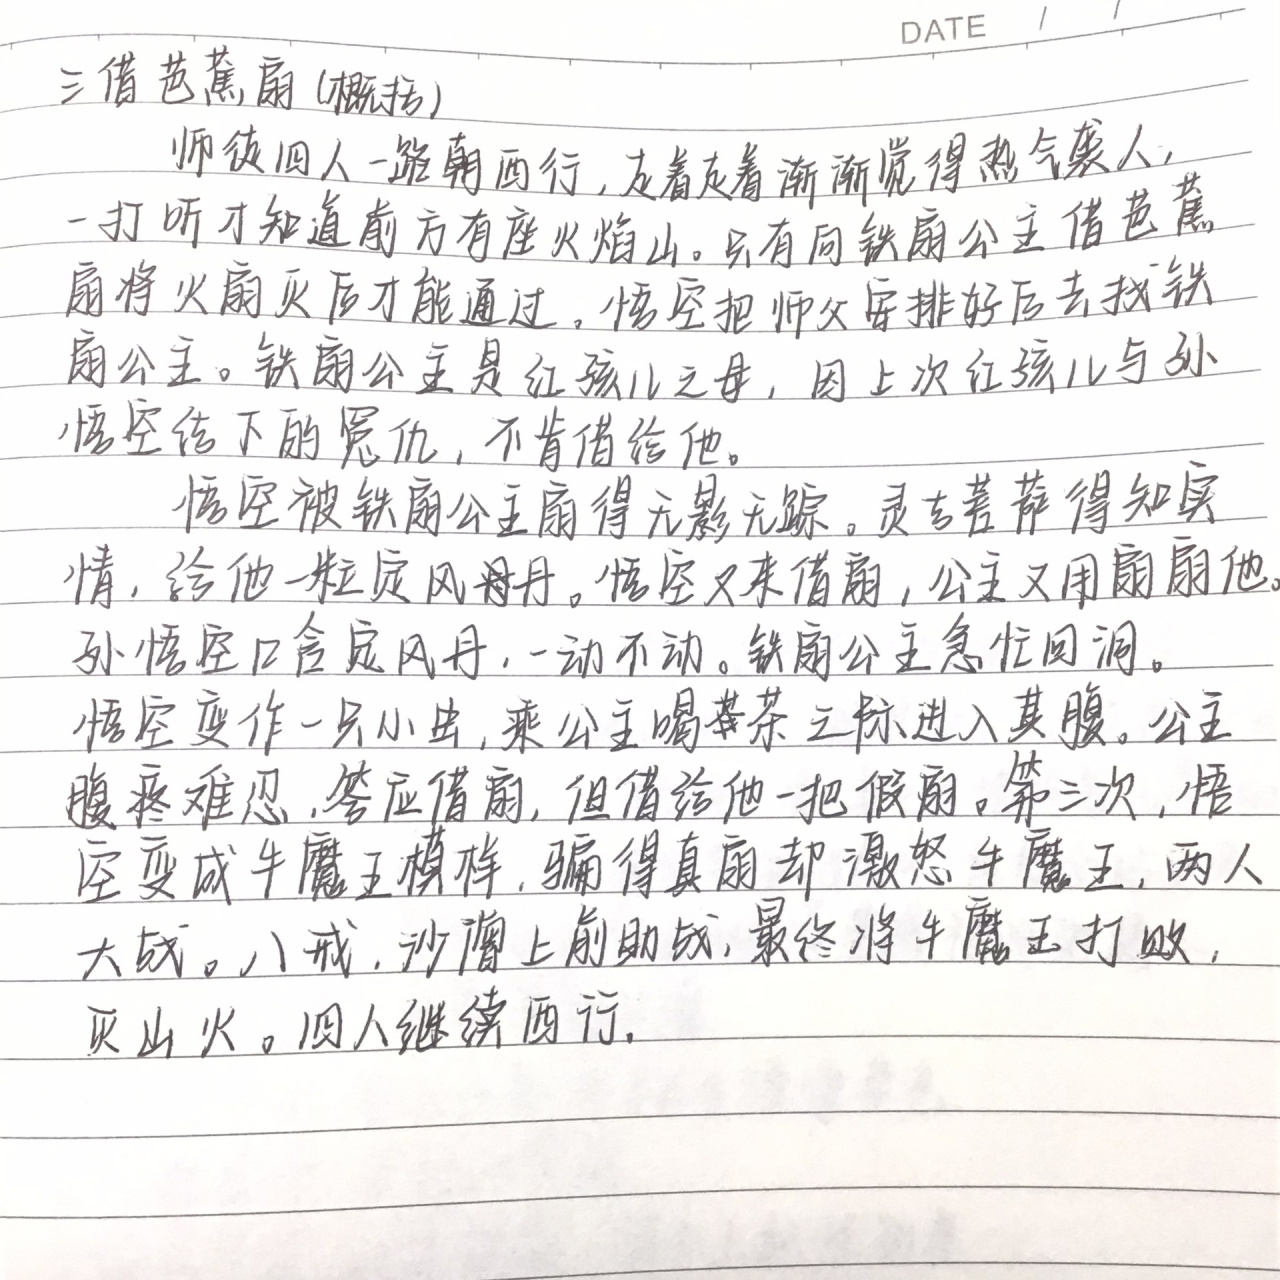 DATE / /
三借芭蕉扇(概括)
师徒四人一路朝西行,走着走着渐渐觉得热气袭人,
一打听才知道前方有座火焰山。只有向铁扇公主借芭蕉
扇将火扇灭后才能通过。悟空把师父安排好后去找铁
扇公主。铁扇公主是红孩儿之母,因上次红孩儿与孙
悟空结下的冤仇,不肯借给他。
悟空被铁扇公主扇得无影无踪。灵吉菩萨得知实
情,给他一粒定风丹。悟空又来借扇,公主又用扇扇他。
孙悟空口含定风丹,一动不动。铁扇公主急忙回洞。
悟空变作一只小虫,乘公主喝茶之际进入其腹。公主
腹疼难忍,答应借扇,但借给他一把假扇。第三次,悟
空变成牛魔王模样,骗得真扇却激怒牛魔王,两人
大战。八戒,沙僧上前助战,最终将牛魔王打败,
灭山火。四人继续西行.